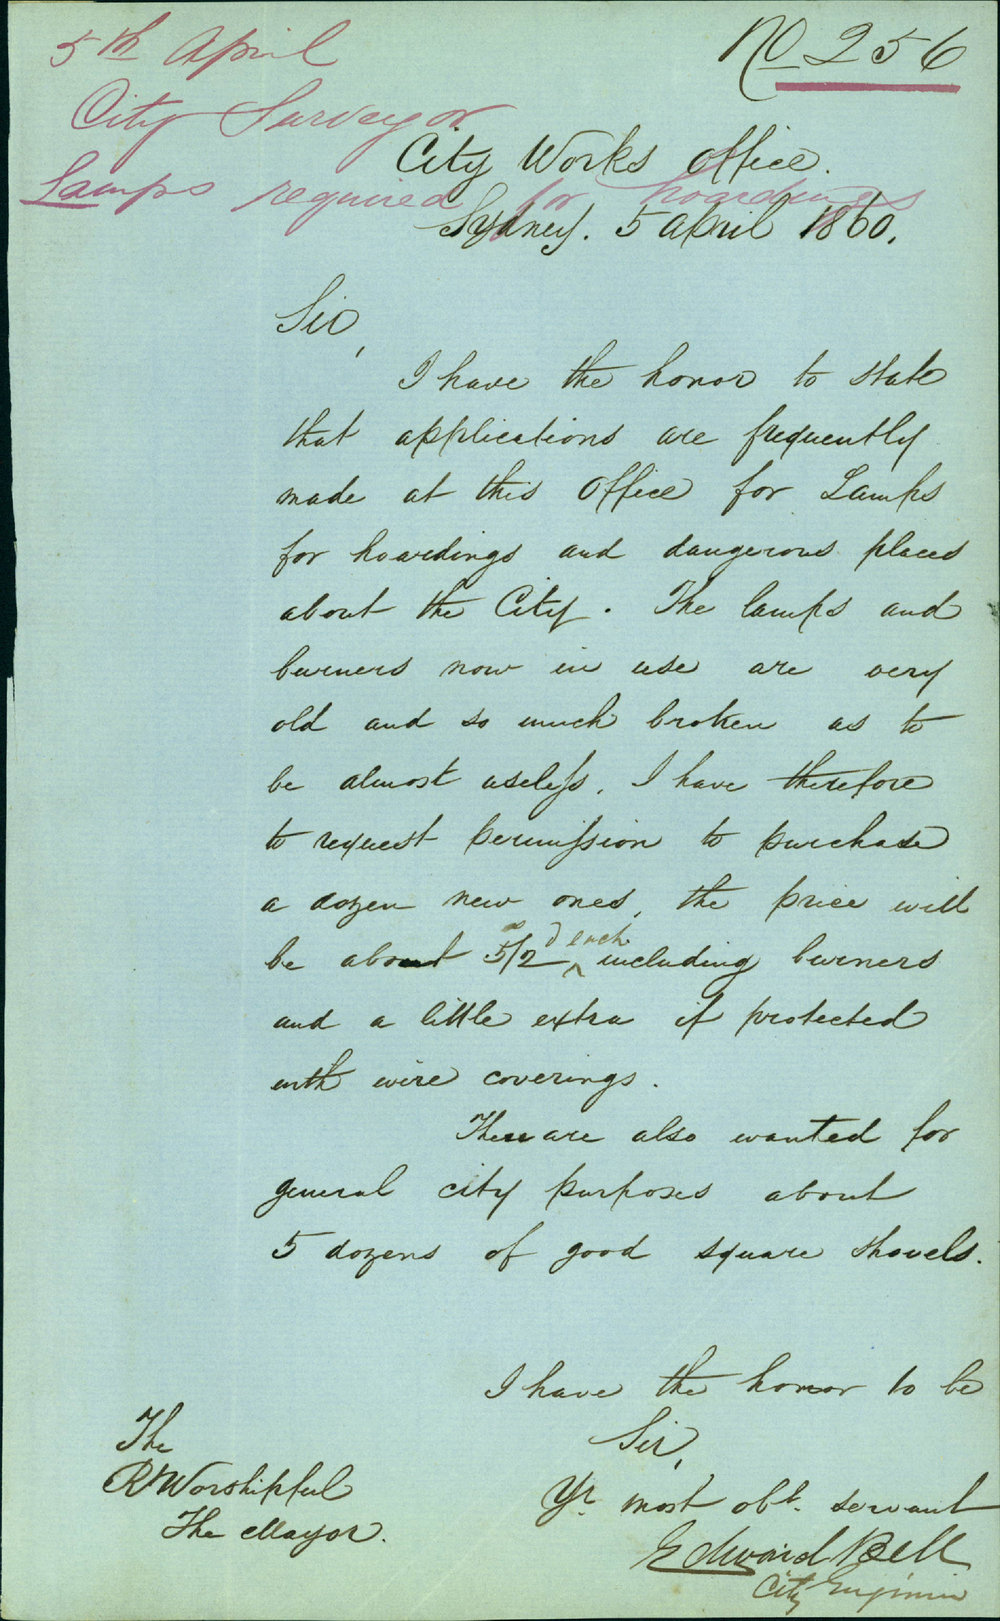 No 256
5th April
City Surveyor
Lamps required for hoardings
City Works Office.
Sydney. 5 April 1860.
Sir,
I have the honor to state
that applications are frequently
made at this Office for Lamps
for hoardings and dangerous places
about the City. The lamps and
burners now in use are very
old and so much broken as to
be almost useless. I have therefore
to request permission to purchase
a dozen new ones, the price will
be about 5/2d each including burners
and a little extra if protected
with wire coverings.
There are also wanted for
general city purposes about
5 dozens of good square shovels.
I have the honor to be
Sir,
Yr. most obt. servant
Edward Bell
City Engineer
The
Rt Worshipful
The Mayor.